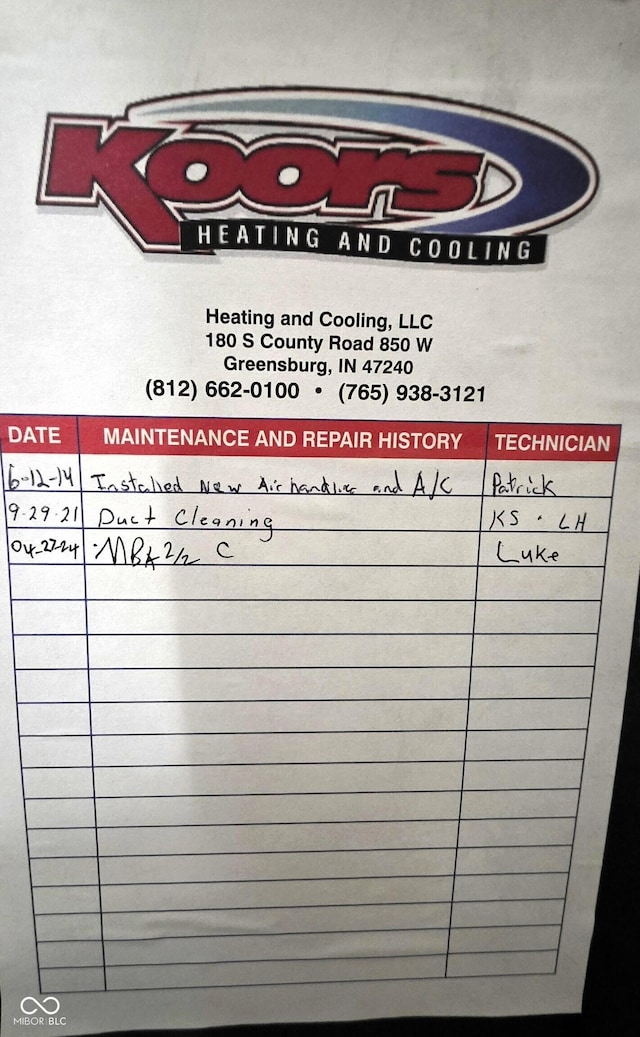 Koors
HEATING AND COOLING
Heating and Cooling, LLC
180 S County Road 850 W
Greensburg, IN 47240
(812) 662-0100 • (765) 938-3121
DATE MAINTENANCE AND REPAIR HISTORY TECHNICIAN
6-12-14 Installed New Air handler and A/C Patrick
9-29-21 Duct Cleaning KS · LH
04-27-24 2/2 C Luke
MIBOR BLC